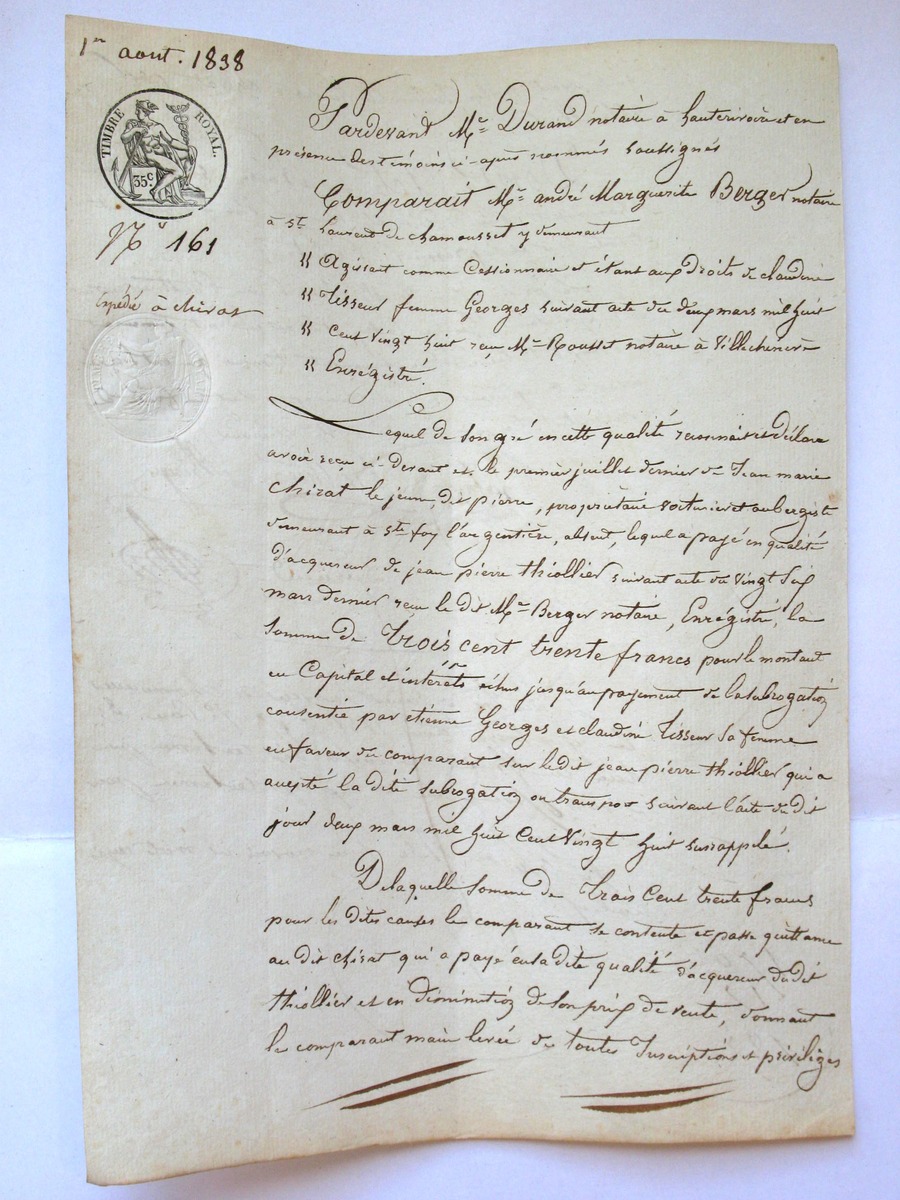 1er aout. 1838
TIMBRE ROYAL.
35c.
No 161
Expédié à chirat
Pardevant Me Durand notaire à hauterivoire et en
présence des témoins ci-après nommés soussignés
Comparait Me andré Marguerite Berger notaire
à St Laurent de chamousset y demeurant
" Agissant comme Cessionnaire et étant aux Droits de claudine
" Tisseur femme Georges suivant acte du deux mars mil huit
" Cent vingt huit reçu Me Rousset notaire à Villechenève
" Enrégistré.
Lequel de son gré en cette qualité reconnait et déclare
avoir reçu ci-devant et le premier juillet dernier de Jean marie
chirat le jeune, dit pierre, propriétaire voiturier et aubergiste
demeurant à Ste foy l'argentière, absent, lequel a payé en qualité
d'acquereur de jean pierre thiollier suivant acte du vingt six
mars dernier reçu le dit Me Berger notaire, Enrégistré, la
somme de trois cent trente francs pour le montant
en Capital et intérêts échus jusqu'au payement de la subrogation
consentie par etienne Georges et claudine Tisseur sa femme
en faveur du comparant sur le dit jean pierre thiollier qui a
accepté la dite subrogation ou transport suivant l'acte du dit
jour deux mars mil huit Cent Vingt huit susrappelé.
De laquelle somme de trois Cent trente francs
pour les dites causes le comparant se contente et passe quittance
au dit chirat qui a payé en la dite qualité d'acquereur du dit
thiollier et en Diminution de son prix de vente, donnant
le comparant main levée de toutes Inscriptions et priviléges